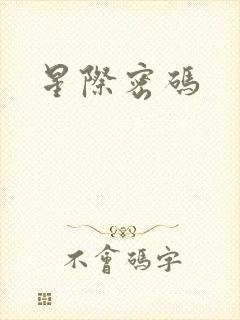 星際密碼
不會碼字